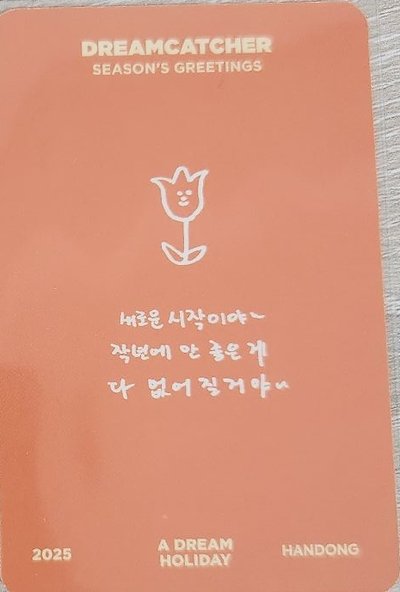 DREAMCATCHER
SEASON'S GREETINGS
새로운 시작이야~
작년에 안 좋은 게
다 없어질거야~
2025
A DREAM
HOLIDAY
HANDONG